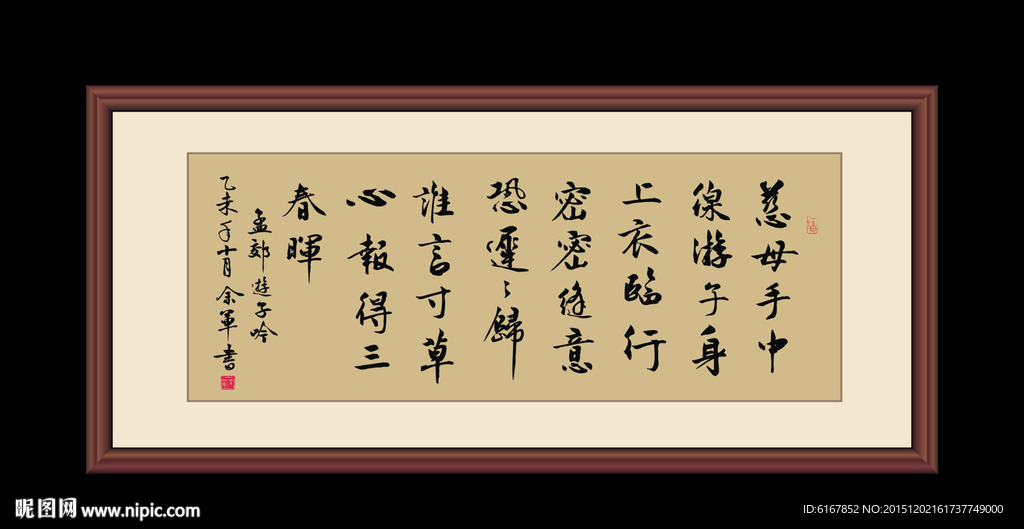 慈母手中
線游子身
上衣臨行
密密縫意
恐遲〻歸
誰言寸草
心報得三
春暉
孟郊遊子吟
乙未年十月余軍書
昵图网 www.nipic.com
ID:6167852 NO:20151202161737749000